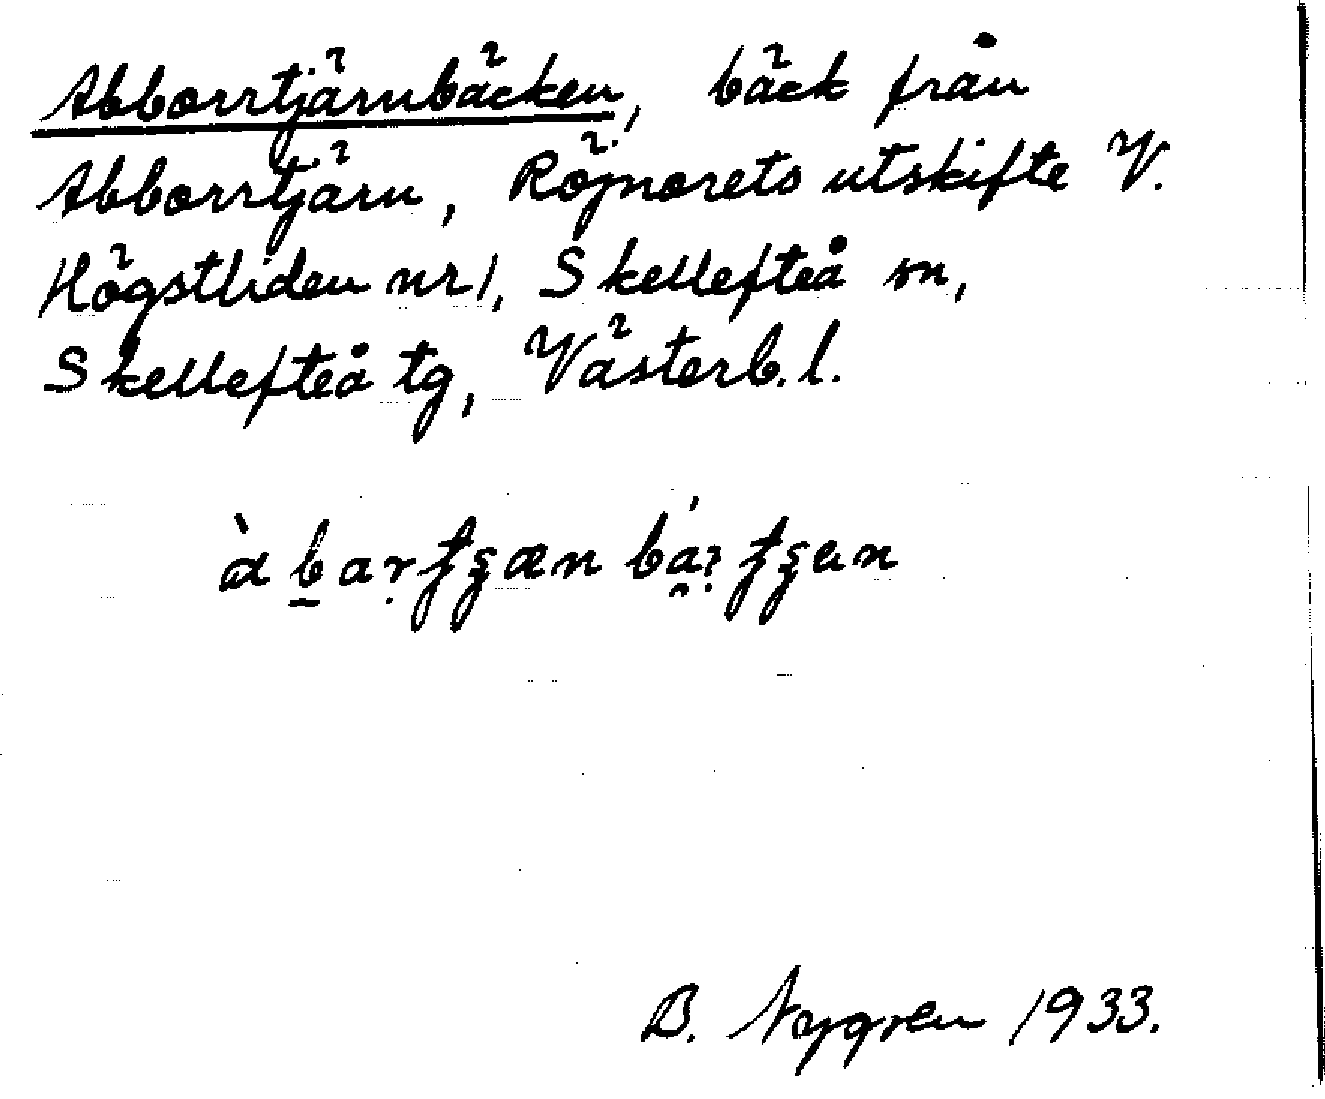 Abborrtjärnbäcken, bäck från
Abborrtjärn, Röjnorets utskifte V.
Högstliden nr 1, Skellefteå sn,
Skellefteå tg, Västerb. l.
B. Nygren 1933.